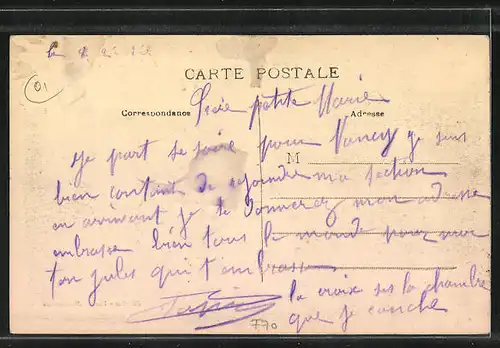 01
CARTE POSTALE
Correspondance
Adresse
petite Marie
M
je part se soire pour Nancy je suis
bien contant de rejoindre ma section
en arrivant je te donnerez mon adresse
embrasse bien tous le monde pour moi
ton jules qui t'embrasse
la croix ses la chambre
que je couche
770